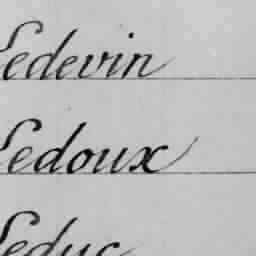 Ledevin
Ledoux
Leduc